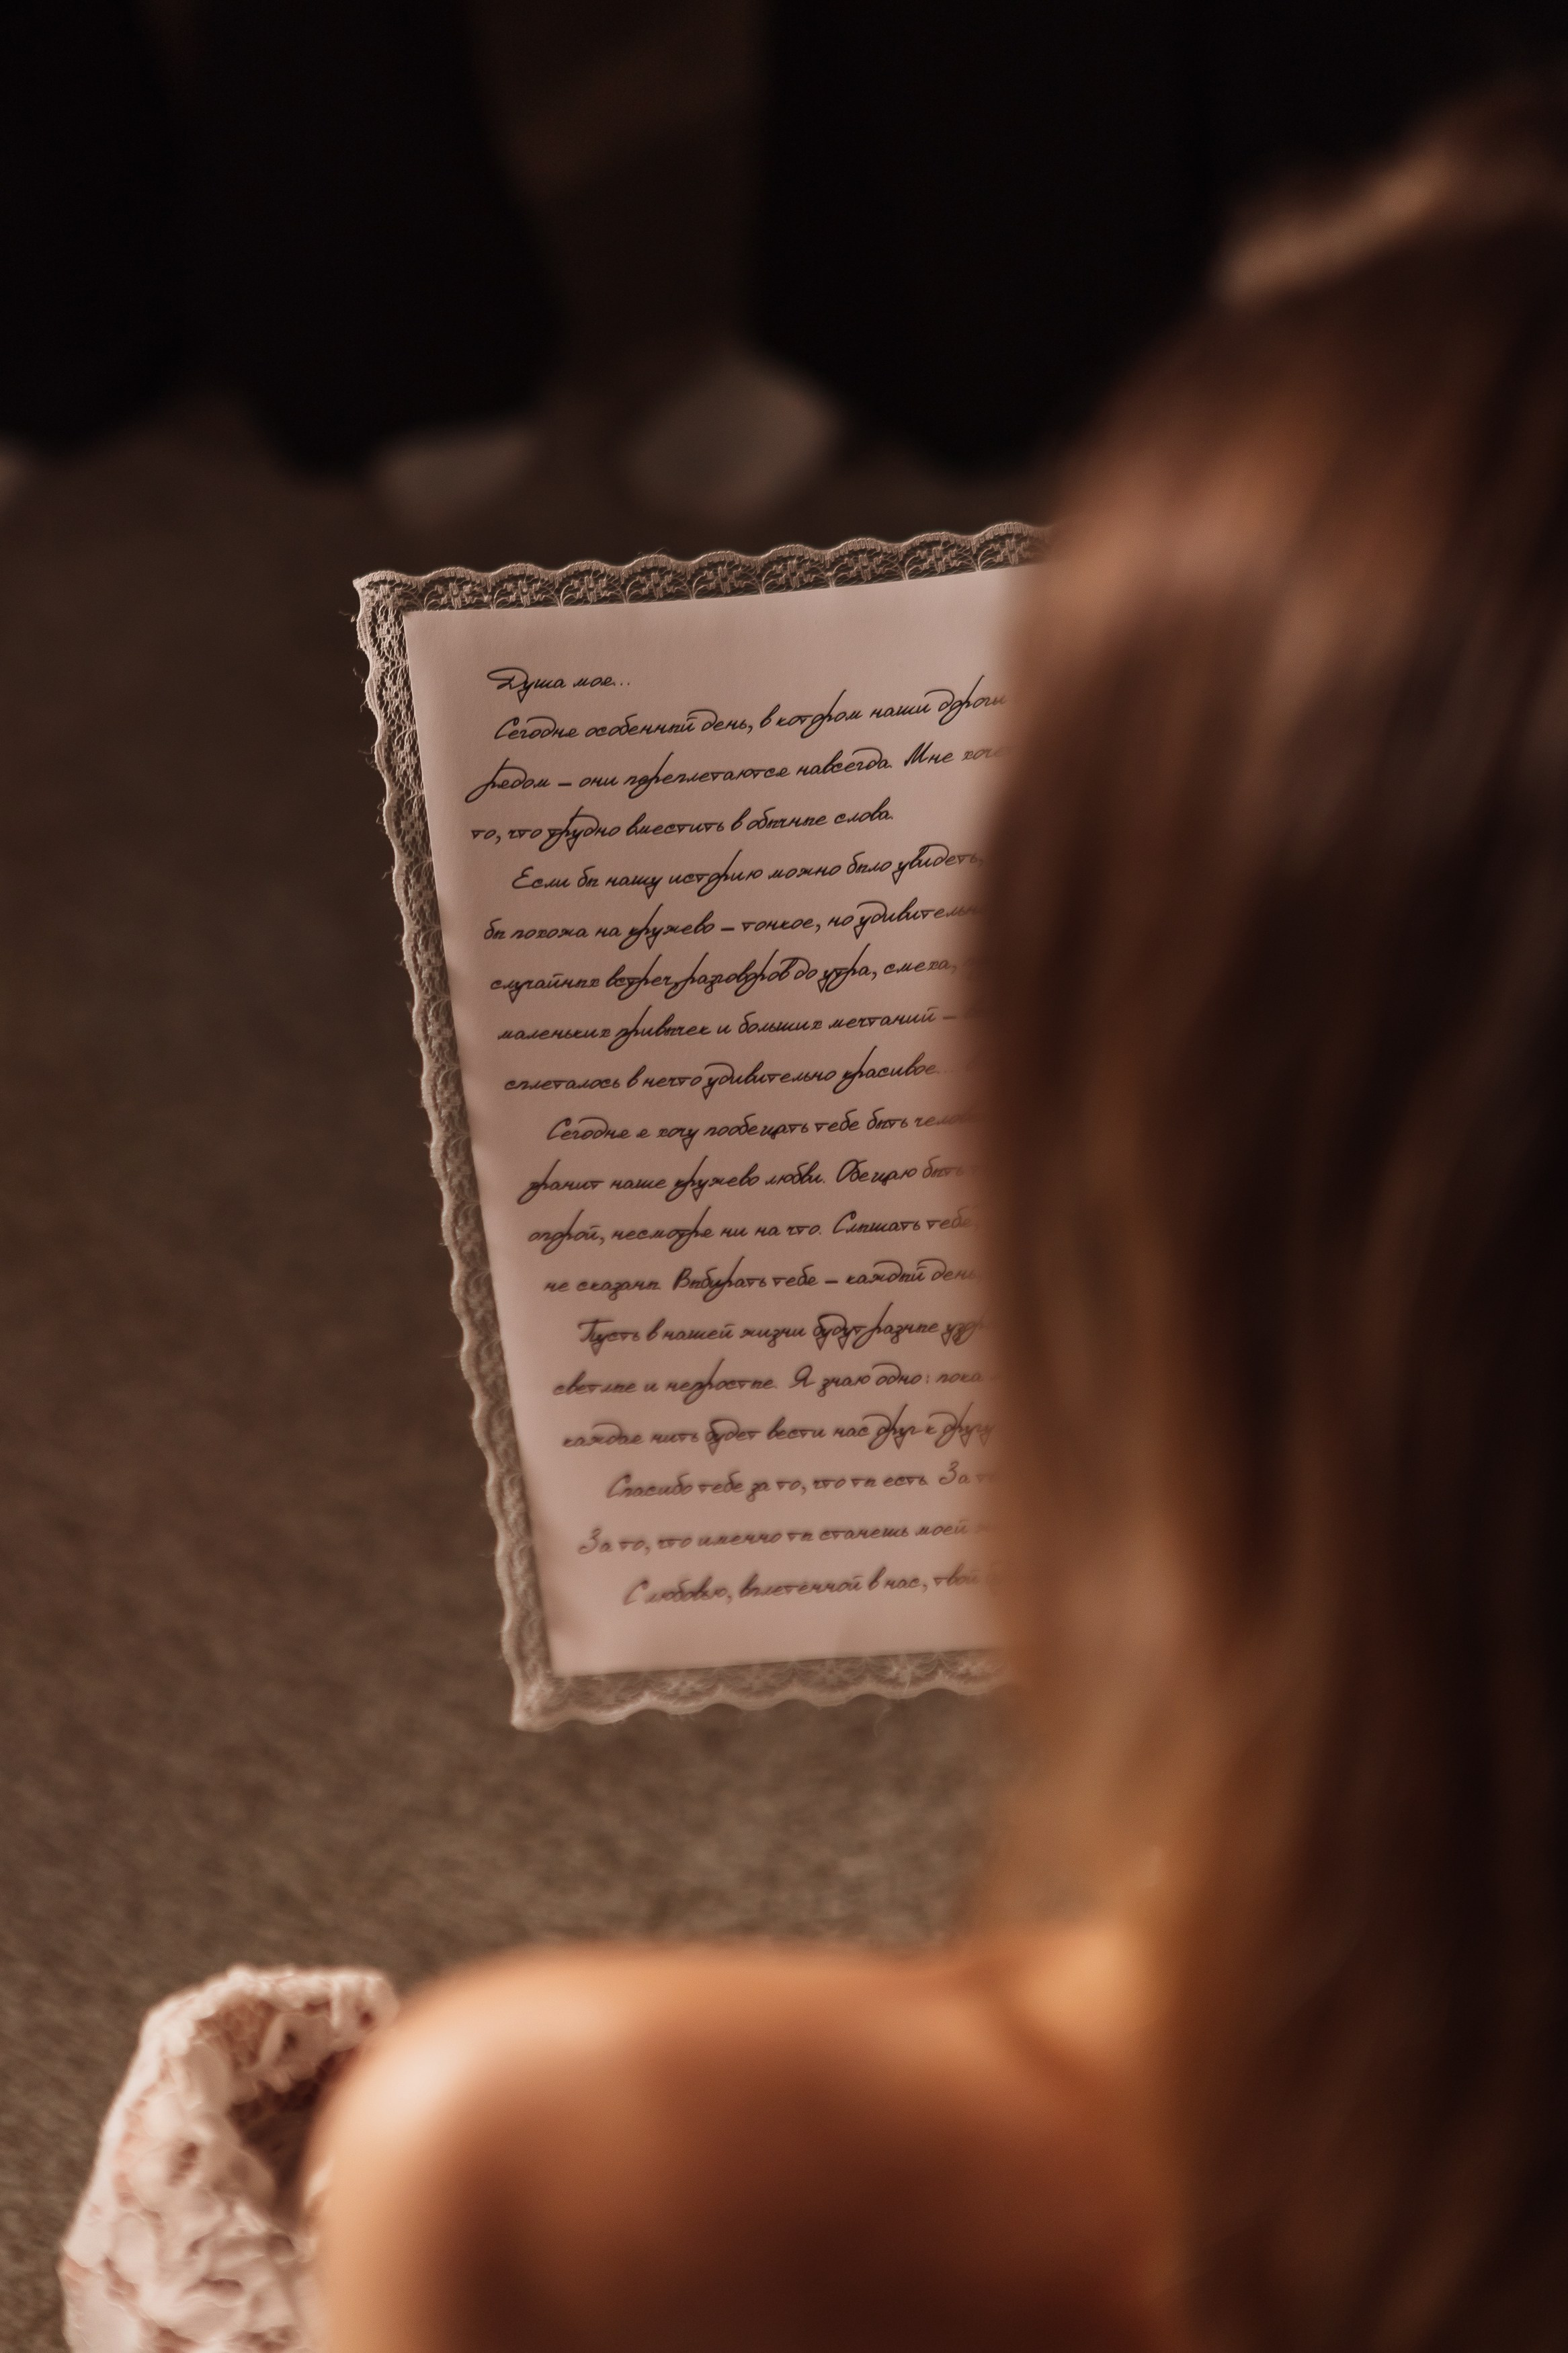 Душа моя...
Сегодня особенный день, в котором наши дороги
рядом – они переплетаются навсегда. Мне
то, что трудно вместить в обычные слова.
Если бы нашу историю можно было увидеть,
бы похожа на кружево – тонкое, но удивительно
случайных встреч, разговоров до утра, смеха,
маленьких привычек и больших мечтаний –
сплеталось в нечто удивительно красивое...
Сегодня я хочу пообещать тебе быть
хранит наше кружево любви. Обещаю быть
опорой, несмотря ни на что. Слышать тебя,
не сказаны. Выбирать тебя – каждый день,
Пусть в нашей жизни будут разные
светлые и непростые. Я знаю одно: пока
каждая нить будет вести нас друг к другу
Спасибо тебе за то, что ты есть. За
За то, что именно ты станешь моей
С любовью, вплетённой в нас, твой